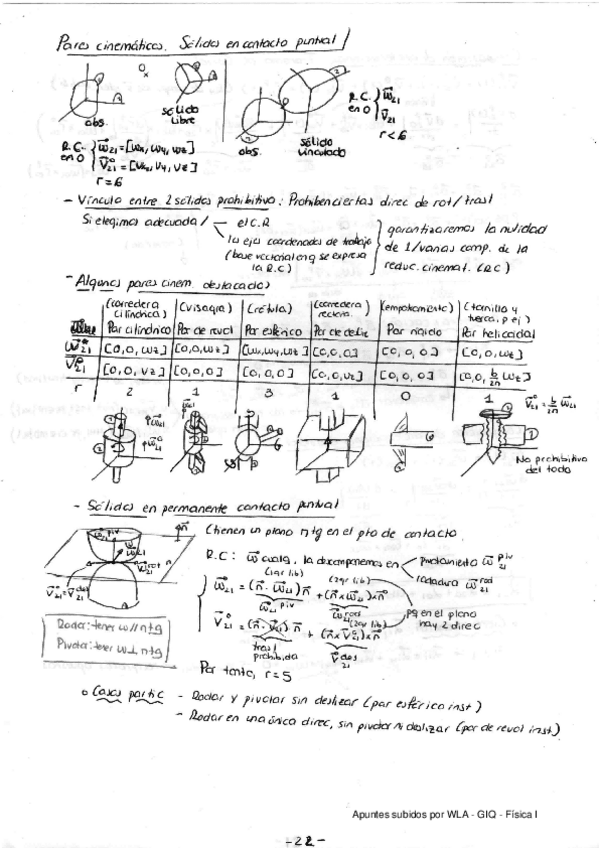 Pares cinemáticos. Sólidos en contacto puntual
O
sólido libre
abs.
R.C. en O { ω⃗21 = [ωx, ωy, ωz]
V⃗21° = [Vx, Vy, Vz]
r = 6
abs.
sólido vinculado
R.C. en O { ω⃗21
V⃗21
r < 6
- Vínculo entre 2 sólidos prohibitivo: Prohiben ciertas direc de rot/trasl
Si elegimos adecuada/
— el C.R
— los ejes coordenados de trabajo
(base vectorial en q se expresa
la R.C)
garantizaremos la nulidad
de 1/varias comp. de la
reduc. cinemat. (RC)
- Algunos pares cinem. destacados
(corredera cilíndrica) (visagra) (rótula) (corredera rectang. (empotramiento) (tornillo y tuerca, p ej)
Par cilíndrico Par de revol Par esférico Par de desliz Par rígido Par helicoidal
ω⃗21 [0,0,ωz] [0,0,ωz] [ωx,ωy,ωz] [0,0,0] [0,0,0] [0,0,ωz]
V⃗21° [0,0,Vz] [0,0,0] [0,0,0] [0,0,Vz] [0,0,0] [0,0, b/2π ωz]
r 2 1 3 1 0 1
V⃗21° = b/2π ω⃗21
No prohibitivo
del todo
- Sólidos en permanente contacto puntual
(tienen un plano π tg en el pto de contacto.
R.C: ω⃗ cualq, la descomponemos en
pivotamiento ω⃗21 piv
rodadura ω⃗21 rod
(1gr lib) (2gr lib)
ω⃗21 = (n⃗ · ω⃗21) n⃗ + (n⃗ x ω⃗21) x n⃗
ω⃗21 piv ω⃗21 rod
(2gr lib)
V⃗21° = (n⃗ · V⃗21) n⃗ + (n⃗ x V⃗21°) x n⃗
trasl prohibida
V⃗21 des
pq en el plano
hay 2 direc
Rodar: tener ω // π tg
Pivotar: tener ω ⊥ π tg
Por tanto, r = 5
o Casos partic - Rodar y pivotar sin deslizar (par esférico inst)
- Rodar en una única direc, sin pivotar ni deslizar (par de revol inst)
Apuntes subidos por WLA - GIQ - Física I
-22-